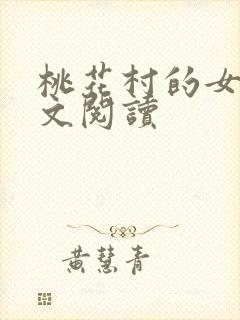 桃花村的女
文閱讀
黃慧青